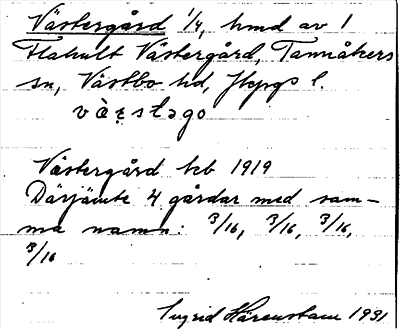 Västergård 1/4, hmd av 1
Flahult Västergård, Tannåkers
sn, Västbo hd, Jkpgs l.
vàṣṭəgo
Västergård kb 1919
Därjämte 4 gårdar med sam-
ma namn: 3/16, 3/16, 3/16,
3/16
Ingrid Härenstam 1931